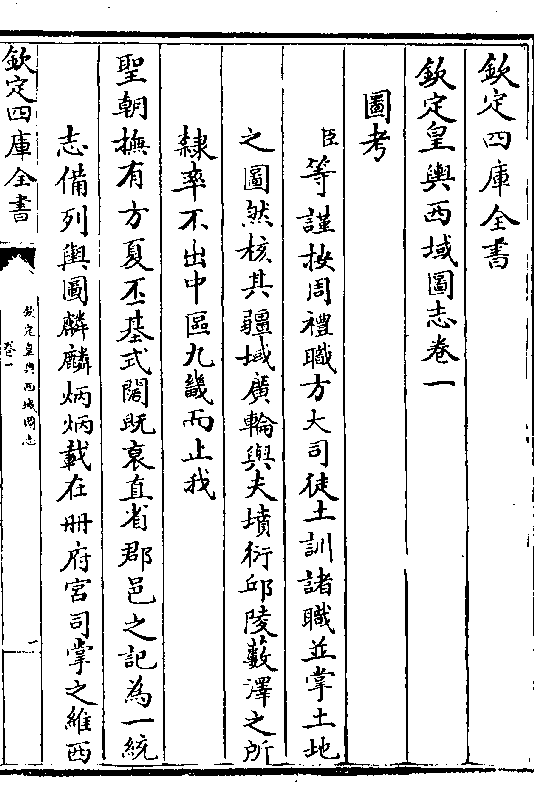 欽定四庫全書
欽定皇輿西域圖志卷一
圖考
臣等謹按周禮職方大司徒土訓諸職並掌土地
之圖然核其疆域廣輪與夫墳衍邱陵藪澤之所
隸率不出中區九畿而止我
聖朝撫有方夏丕基式闊既裒直省郡邑之記為一統
志備列輿圖麟麟炳炳載在冊府宮司掌之維西
欽定四庫全書
欽定皇輿西域圖志
卷一
一